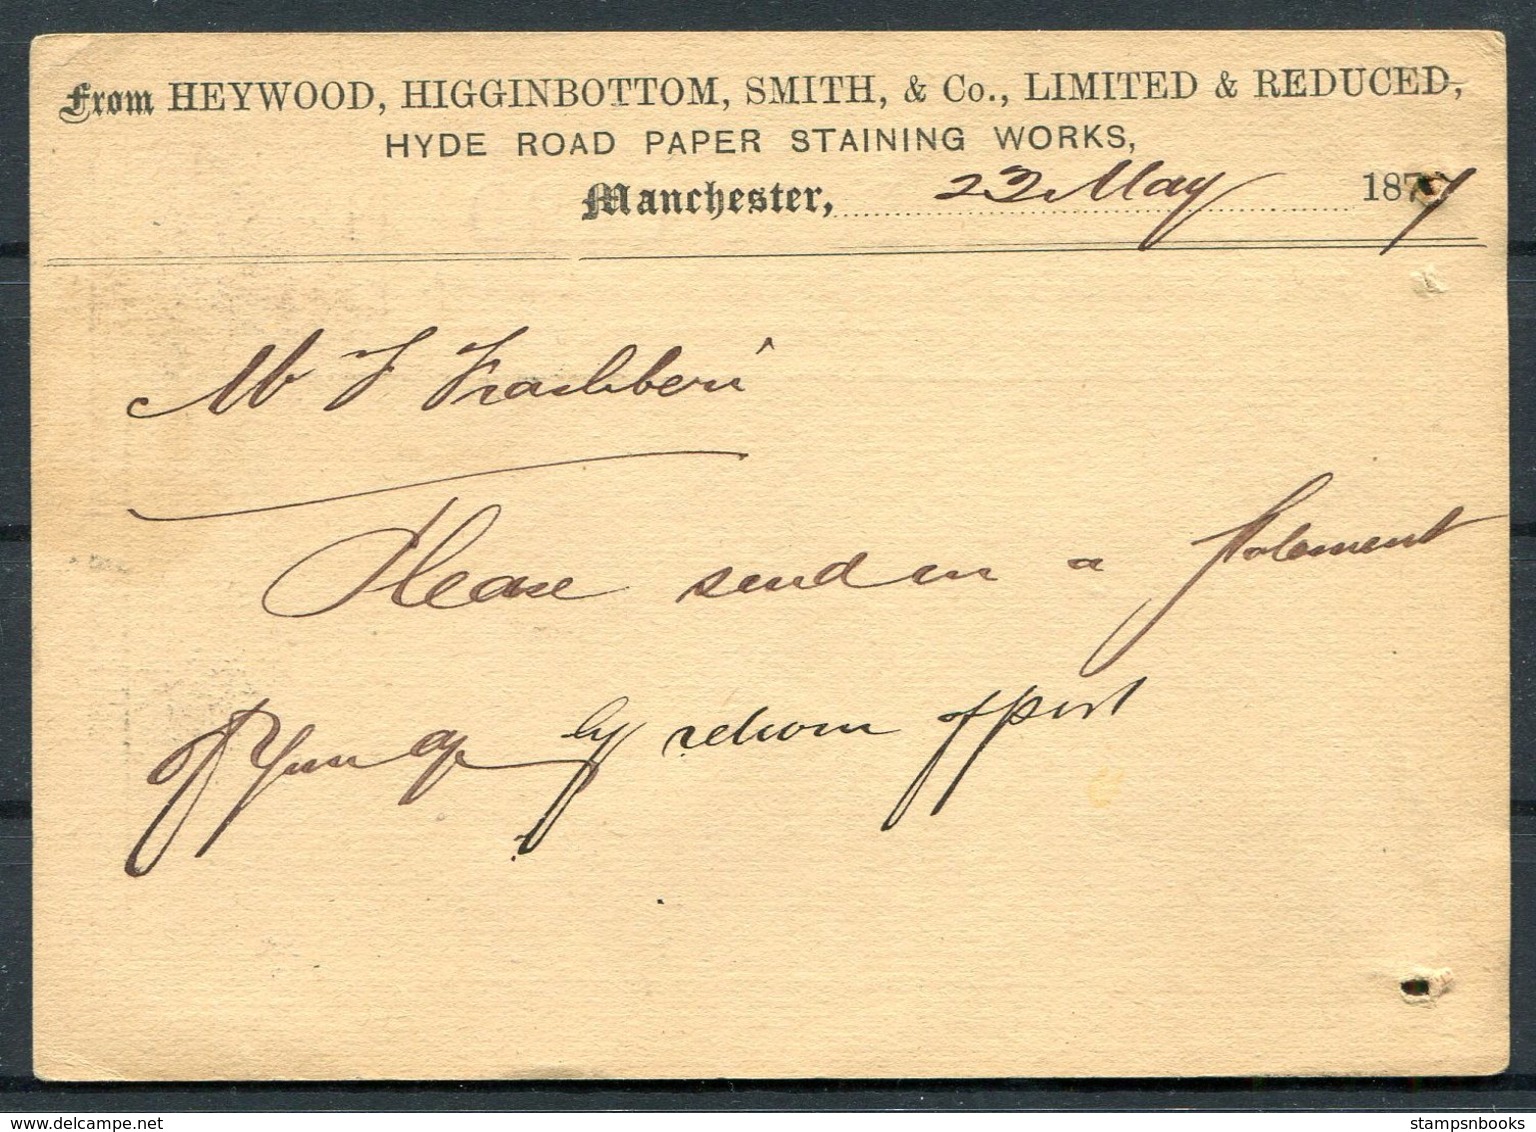 From HEYWOOD, HIGGINBOTTOM, SMITH, & Co., LIMITED & REDUCED,
HYDE ROAD PAPER STAINING WORKS,
Manchester, 23 May 187
Mr F
Please send in a Statement
of your a/c by return of post
delcampe.net
stampsnbooks